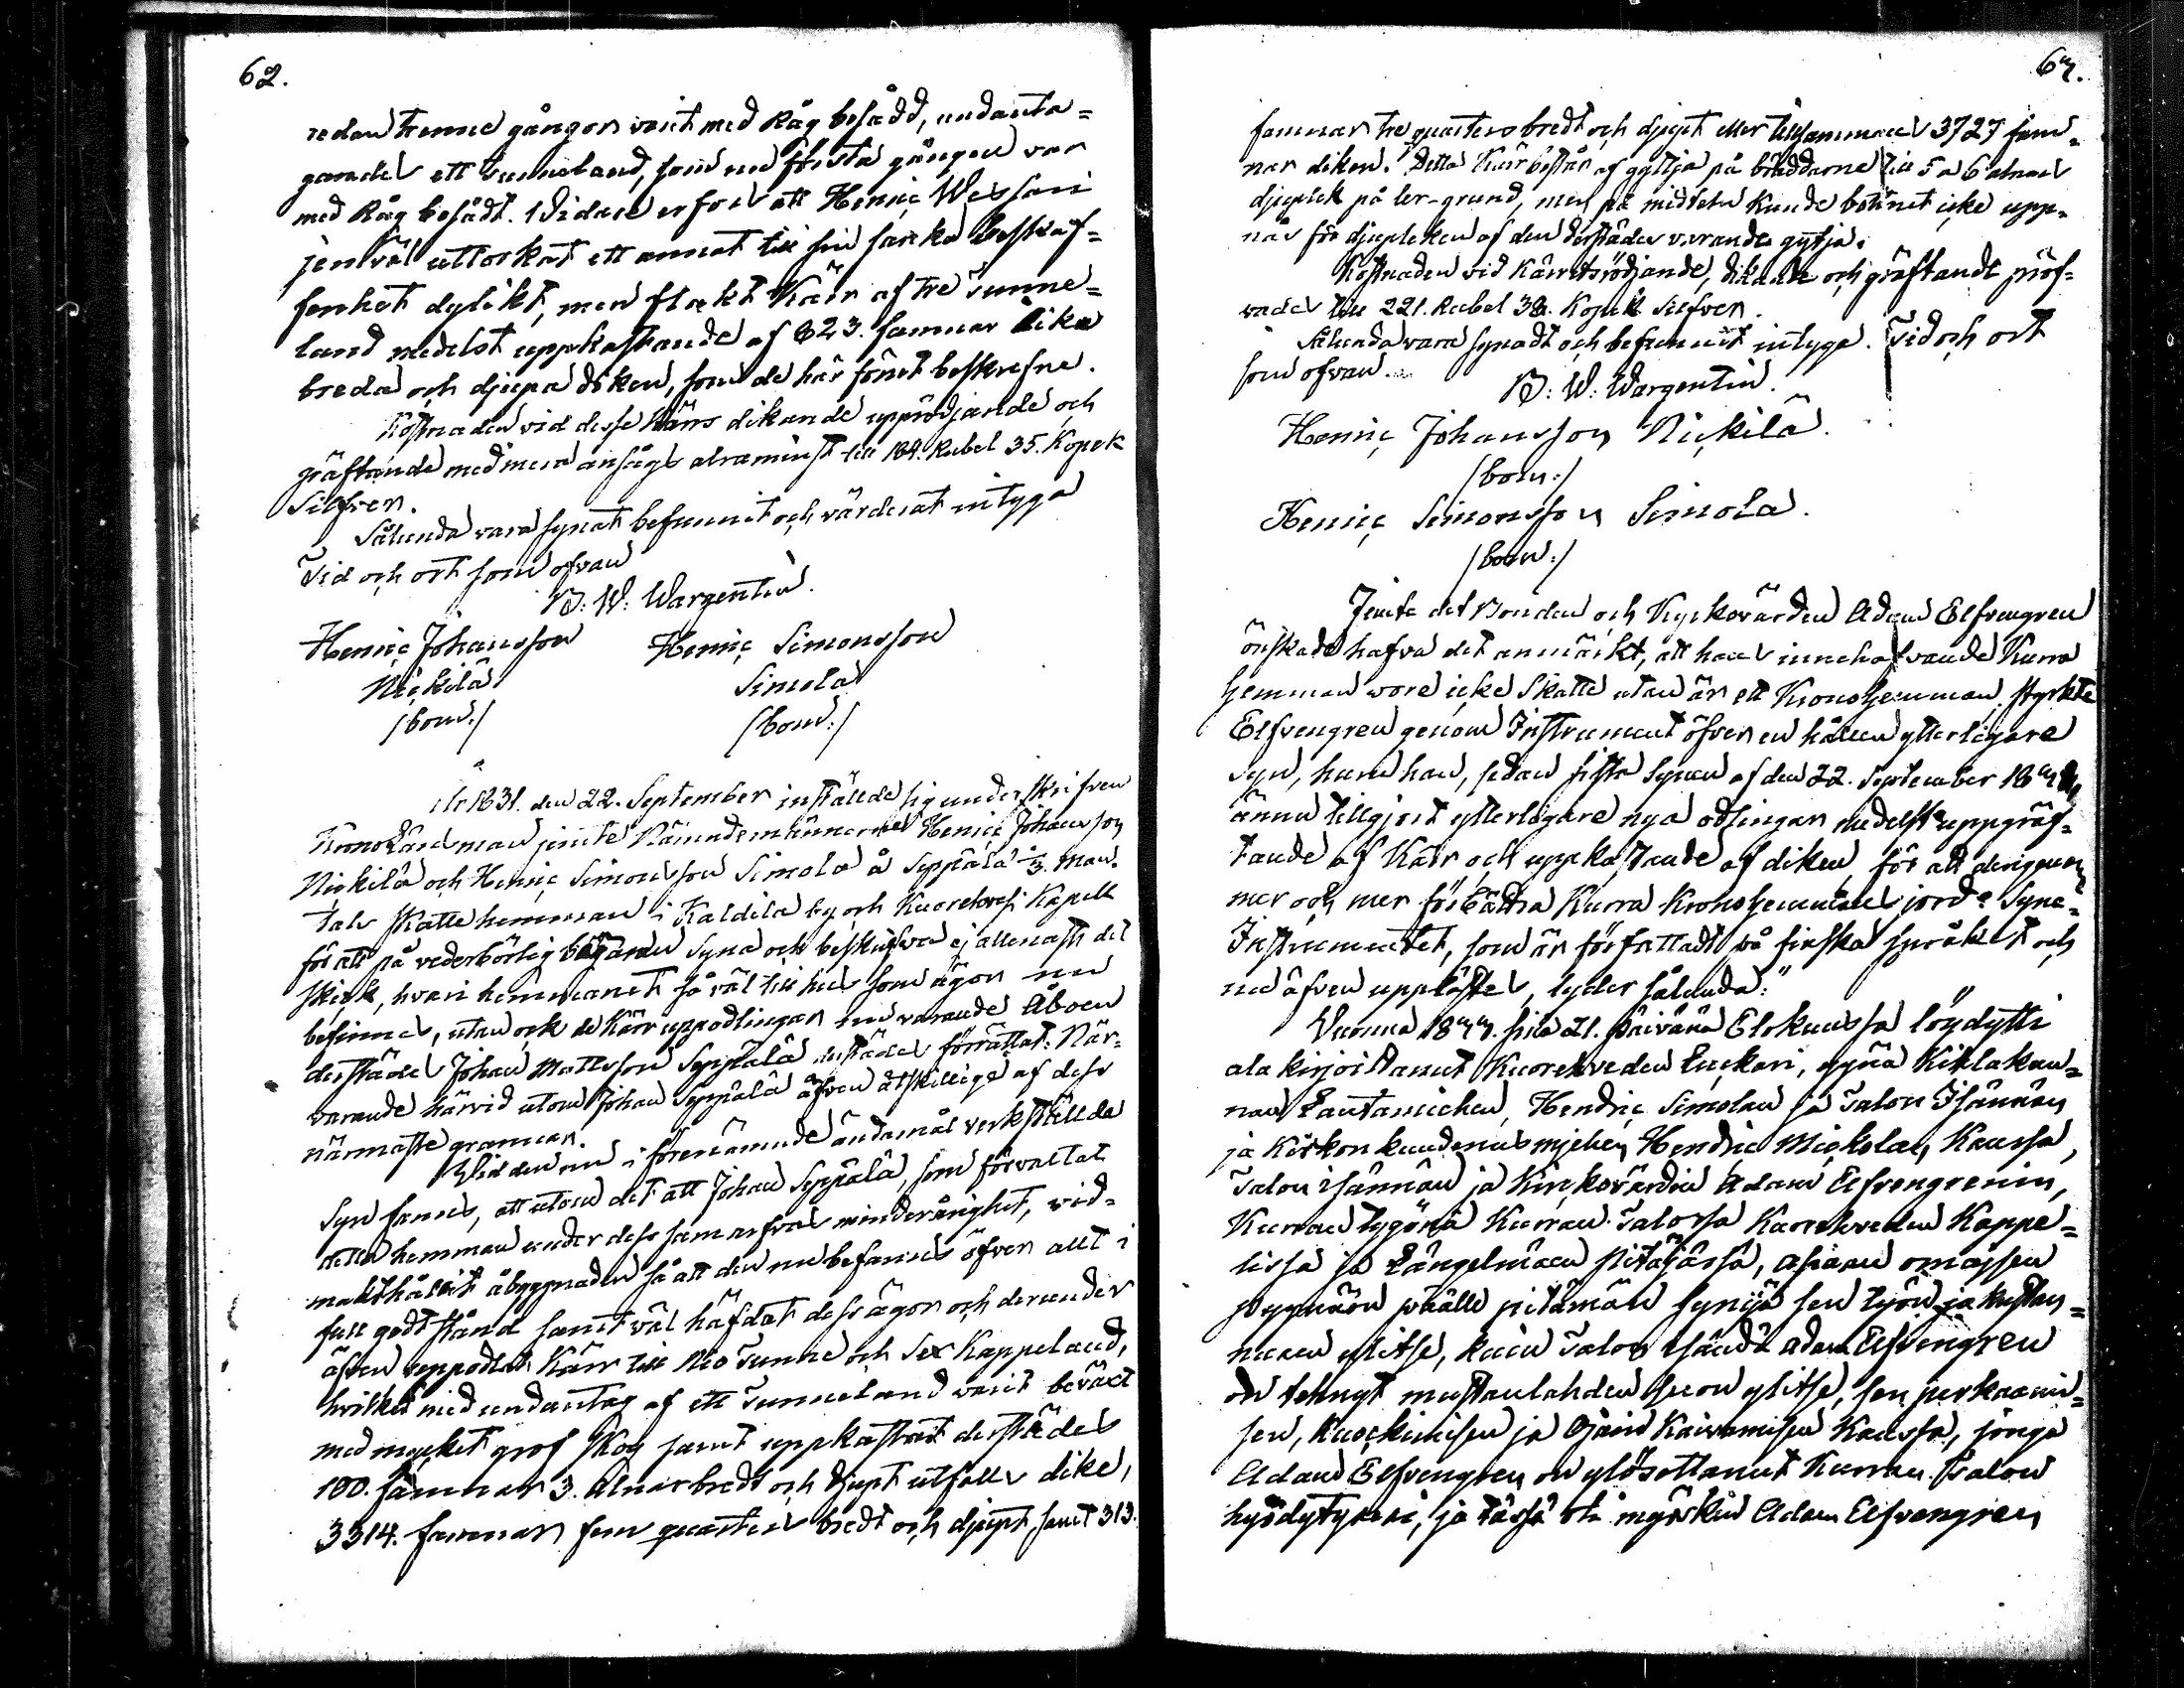 62.
redan trenne gångor varit med Råg besådd, undanta=
gandes ett tunneland, som nu första gången var
med Råg besådt. Widare erfors att Henric Wessari
jemväl uttorkat ett annat till sin sanka beskaf=
fenhet dylikt, men flakt Kärr af tre Tunne=
land medelst uppkastande af 823. famnar lika
breda och djupa diken, som de här förut beskrefne.
Kostnaden vid desse Kärrs dikande uppröd̄jande och
gräftande med mera ansågs alraminst till 184. Rubel 35. Kopek
Silfver.
Sålunda vara synat befunnit och värderat intyga
Tid och ort som ofvan
B: W: Wargentin.
Henric Johansson Henric Simonsson
Nickilä Simola
/bom./ /bom:/
År 1831. den 22. September inställde sig underskrifven
Kronolänsman jemte Nämndemännerne Henric Johansson
Nickilä och Henric Simonsson Simola å Seppälä 1/3. Man=
tals skatte hemman i Kaldila by och Kuorehvesi Kapell
för att på vederbörlig begäran syna och beskrifva ej allenast det
skick, hvari hemmanet så väl till hus som ägor nu
befinnes, utan ock de Kärruppodlingar nuvarande Åboen
derstädes Johan Mattsson Seppälä derstädes förrättat. När=
varande härvid utom Johan Seppälä äfven åtskillige af dess
närmaste grannar.
Wid den nu i förenämnde ändamål verkställda
Syn fanns, att utom det att Johan Seppälä, som förvaltat
detta hemman under dess samarfvas minderårighet, vid=
makthållit åbyggnaden så att den nu befanns öfver allt i
full godt stånd samt väl häfdat dess ägor och derunder
äfven uppodlat Kärr till Nio Tunne och Sex Kappeland,
hvilket med undantag af ett Tunneland varit beväxt
med mycket grof Skog samt uppkastat derstädes
100. famnar 3. Alnar bredt och djupt utfalls dike,
3314. famnar fem quarter bredt och djupt, samt 313.
63.
famnar tre quarters bredt och djupt eller tillsammans 3727 fam=
nar diken. Detta Kärr består af gyttja på bräddarne till 5 a 6 alnars
djuplek på ler-grund, men på midtelen kunde bottnet icke upp=
nås för djupleken af den derstädes varande gytja.
Kostnaden vid Kärrets rödjande, dikande och gräftandt pröf=
vades till 221. Rubel 38. Kopek Silfver.
Sålunda vara synadt och befunnit intyga. Tid och ort
som ofvan.
B: W: Wargentin.
Henric Johansson Nickilä.
/bom:/
Henric Simonsson Simola.
/bom:/
Jemte det Bonden och Kyrkovärden Adam Elfvengren
önskade hafva det anmärkt, att hans innehafvande Kurra
hemman vore icke Skatte utan är ett Kronohemman, styrkte
Elfvengren genom Instrument öfver en hållen ytterligare
syn, hurn han, sedan sista synen af den 22. September
ännu tillgjort ytterligare nya odlingar medelst uppgräf=
tande af Kärr och uppkastande af diken, för att derigenom
mer och mer förbättra Kurra Kronohemmans jord: Syne=
Instrumentet, som är författadt på finska språket och
nu äfven upplästes, lyder sålunda:"
Vuonna 1833. sinä 21. päivänä Elokuussa löydytti
ala kirjoittanut Kuorehveden Luckari, ynnä Kihlakun=
nan Lautamiehen, Hendric Simolan ja Talon Isännän
ja Kirkon kuudenusmiehen Hendric Mickolan, Kanssa,
Talon isännän ja Kirckovärdin Adam Elfvengrenin,
Kurran tygönä Kurran Talossa Kuorehveden Kappe=
lissa ja Längelmäen Pitäjässä, asiaan omaisen
pyynnön päälle pitämän Synijä sen työn ja kustan=
nuxen ylitse, kuin Talon Isändä Adam Elfvengren
on tehnyt mustanlahden suon ylitse, sen perkaami=
sen, kuockimisen ja Ojain Kaivamisen Kanssa, jonga
Adam Elfvengren on ylösottanut Kurran Talon
hyödytyxexi, ja tässä oli myöskin Adam Elfvengren